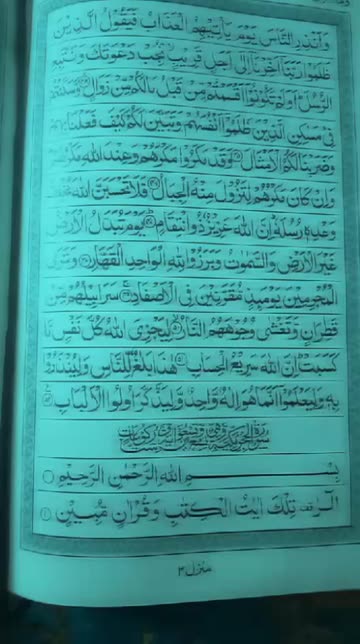 وَاَنْذِرِ النَّاسَ يَوْمَ يَاْتِيْهِمُ الْعَذَابُ فَيَقُوْلُ الَّذِيْنَ
ظَلَمُوْا رَبَّنَاۤ اَخِّرْنَاۤ اِلٰۤى اَجَلٍ قَرِيْبٍ نُّجِبْ دَعْوَتَكَ وَنَتَّبِعِ
الرُّسُلَ اَوَلَمْ تَكُوْنُوْۤا اَقْسَمْتُمْ مِّنْ قَبْلُ مَا لَكُمْ مِّنْ زَوَالٍ وَّسَكَنْتُمْ
فِيْ مَسٰكِنِ الَّذِيْنَ ظَلَمُوْۤا اَنْفُسَهُمْ وَتَبَيَّنَ لَكُمْ كَيْفَ فَعَلْنَا بِهِمْ
وَضَرَبْنَا لَكُمُ الْاَمْثَالَ وَقَدْ مَكَرُوْا مَكْرَهُمْ وَعِنْدَ اللّٰهِ مَكْرُهُمْ
وَاِنْ كَانَ مَكْرُهُمْ لِتَزُوْلَ مِنْهُ الْجِبَالُ فَلَا تَحْسَبَنَّ اللّٰهَ مُخْلِفَ
وَعْدِهٖ رُسُلَهٗ اِنَّ اللّٰهَ عَزِيْزٌ ذُو انْتِقَامٍ يَوْمَ تُبَدَّلُ الْاَرْضُ
غَيْرَ الْاَرْضِ وَالسَّمٰوٰتُ وَبَرَزُوْا لِلّٰهِ الْوَاحِدِ الْقَهَّارِ وَتَرَى
الْمُجْرِمِيْنَ يَوْمَئِذٍ مُّقَرَّنِيْنَ فِي الْاَصْفَادِ سَرَابِيْلُهُمْ مِّنْ
قَطِرَانٍ وَّتَغْشٰى وُجُوْهَهُمُ النَّارُ لِيَجْزِيَ اللّٰهُ كُلَّ نَفْسٍ مَّا
كَسَبَتْ اِنَّ اللّٰهَ سَرِيْعُ الْحِسَابِ هٰذَا بَلٰغٌ لِّلنَّاسِ وَلِيُنْذَرُوْا
بِهٖ وَلِيَعْلَمُوْۤا اَنَّمَا هُوَ اِلٰهٌ وَّاحِدٌ وَّلِيَذَّكَّرَ اُولُوا الْاَلْبَابِ
بِسْمِ اللّٰهِ الرَّحْمٰنِ الرَّحِيْمِ
الٓرٰ تِلْكَ اٰيٰتُ الْكِتٰبِ وَقُرْاٰنٍ مُّبِيْنٍ
منزل ٣